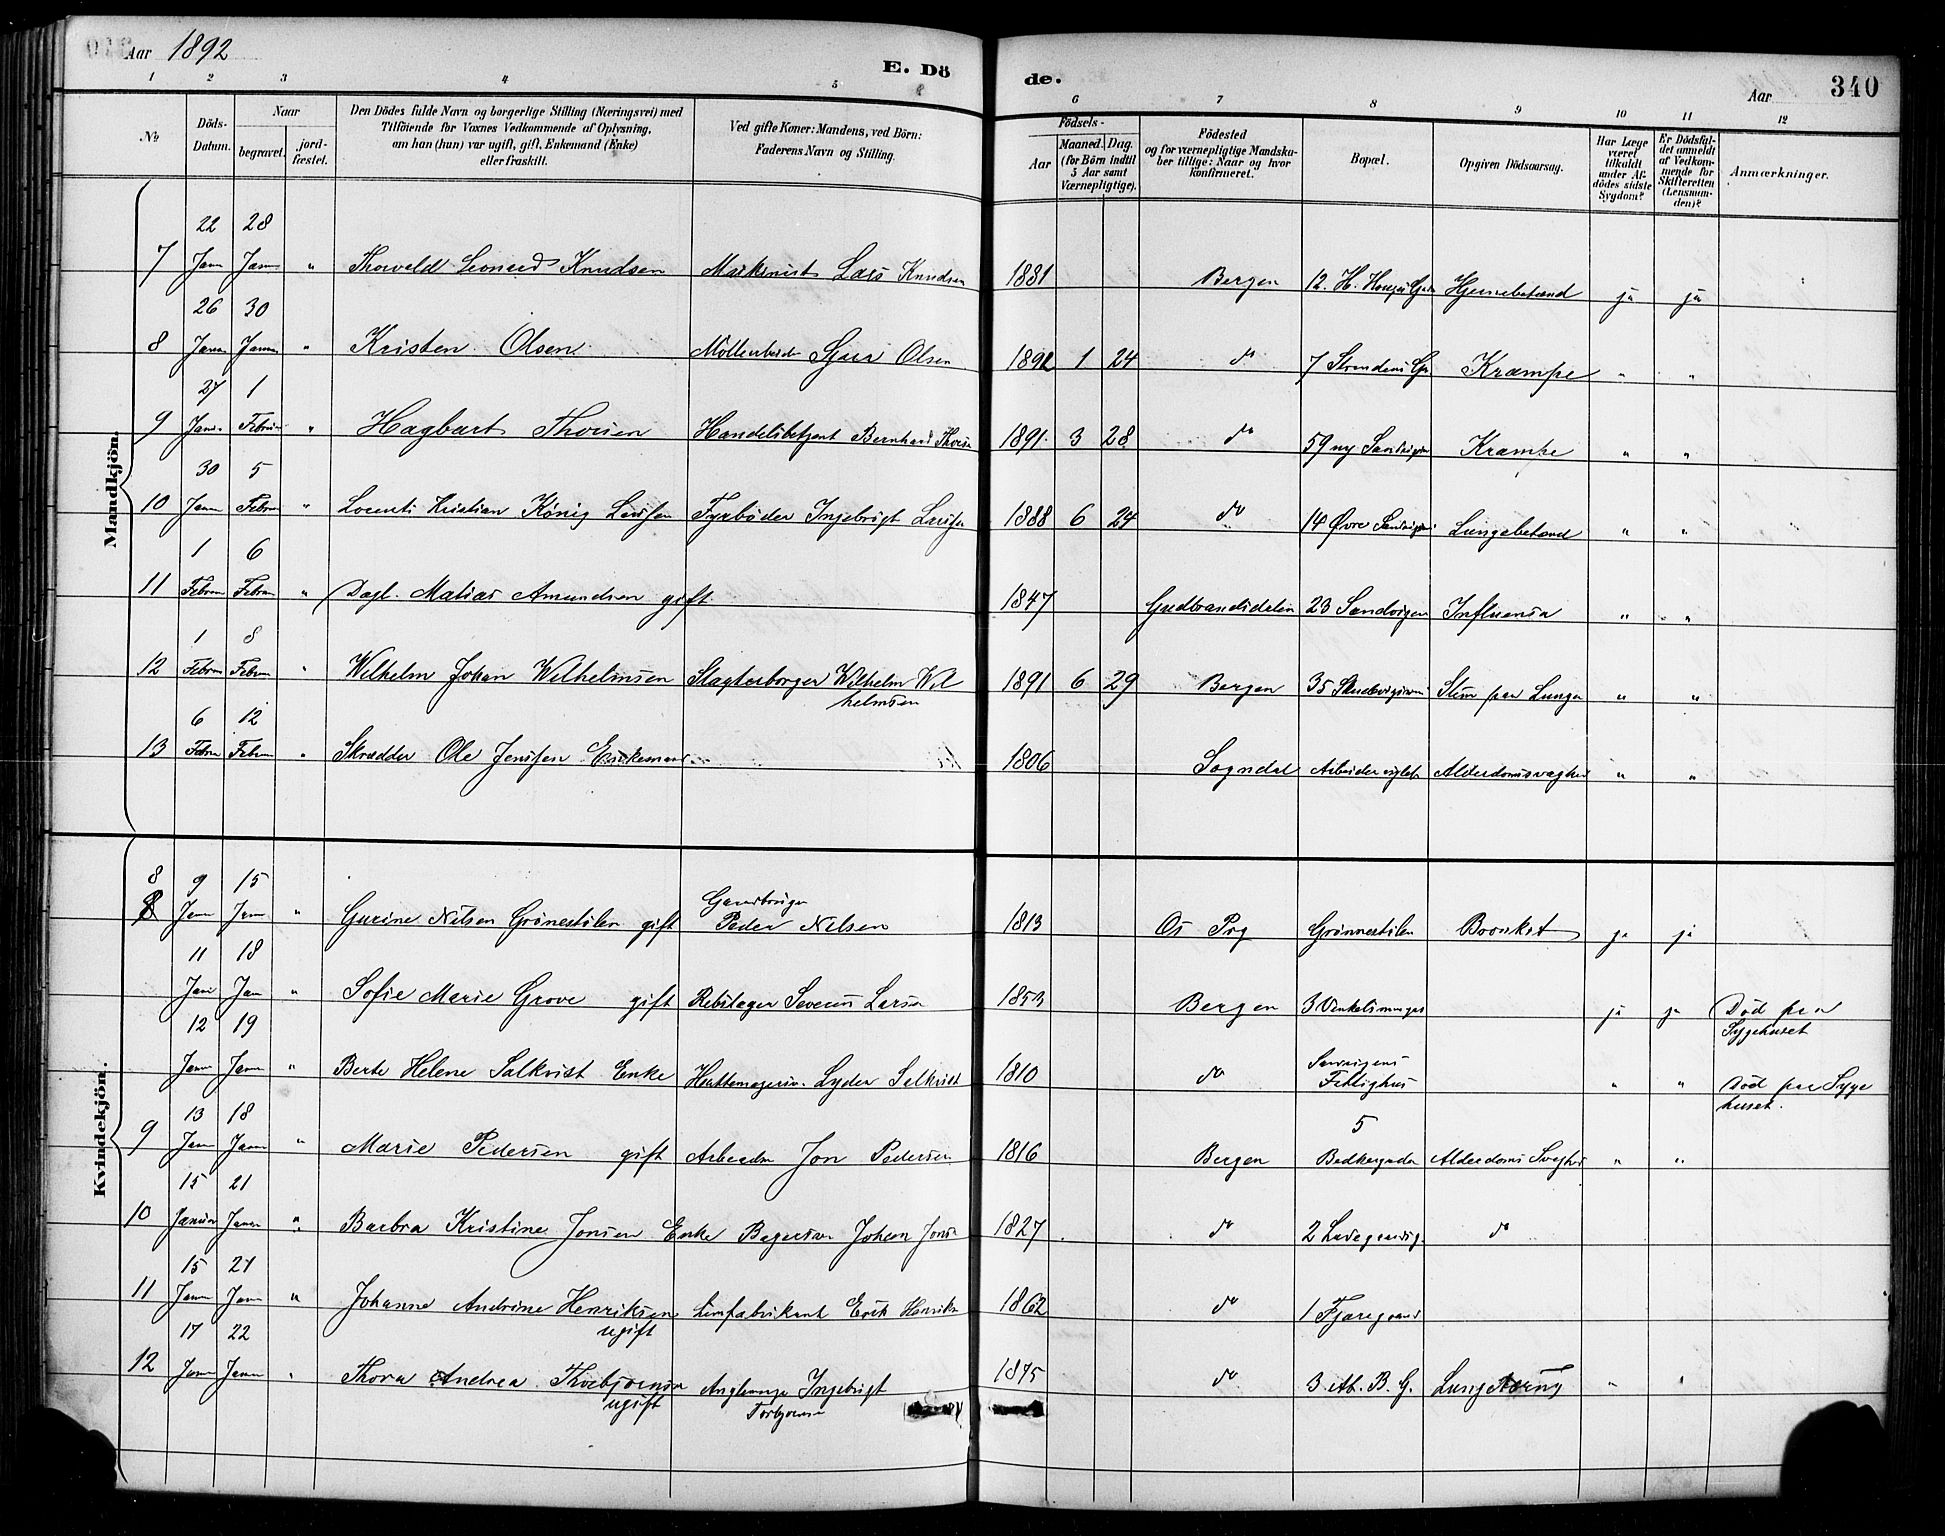 Aar 1892
E. Dö
de.
Aar
340
1 2 3 4 5 6 7 8 9 10 11 12
No
Döds-Datum.
Naar
begravet.
jordfæstet.
Den Dödes fulde Navn og borgerlige Stilling (Næringsvei) med
Tilföiende for Voxnes Vedkommende af Oplysning,
om han (hun) var ugift, gift, Enkemand (Enke)
eller fraskilt.
Ved gifte Koner: Mandens, ved Börn:
Faderens Navn og Stilling.
Födsels-
Aar
Maaned. Dag.
(for Börn indtil
5 Aar samt
Værnepligtige).
Födested
og for værnepligtige Mandska-
ber tillige: Naar og hvor
konfirmeret.
Bopæl.
Opgiven Dödsaarsag.
Har Læge
været
tilkaldt
under Af-
dödes sidste
Sygdom?
Er Dödsfal-
det anmeldt
af Vedkom-
mende for
Skifteretten
(Lensman-
den)?
Anmærkninger.
Mandkjön.
22 28
7 Janu Janu " Thorvald Leonard Knudsen Maskinist Lars Knudsen 1881 Bergen 12. H. Hjernebetænd ja ja
26 30
8 Janu Janu " Kristen Olsen Olsen 1892 1 24 do 7 Krampe " "
27 1
9 Janu Februar " Hagbart Thorsen Handelsbetjent Bernhard Thorsen 1891 3 28 do 59 ny Sandvigsv Krampe " "
30 5
10 Janu Febru " Lorents Kristian König Larsen Fyrböder Ingebrigt Larsen 1888 6 24 do 14 Øvre Sandvigsv Lungebetænd " "
1 6
11 Febru Febru " Dagl. Matias Amundsen gift 1847 Gudbrandsdalen 23 Sandvigen Influensa " "
1 8
12 Febru Febru " Wilhelm Johan Wilhelmsen Slagterborger Wilhelm Wil
helmsen 1891 6 29 Bergen 35 Slim paa Lunger " "
6 12
13 Febru Febru " Skrædder Ole Jensen Enkemand 1806 Sogndal Alderdomsvaghed " "
Kvindekjön.
8 9 15
Janu Janu " Gurine Nilsen Grönestölen gift Gaardbruger
Peder Nilsen 1813 Os Prg Grönnestölen Bronkit ja ja
11 18
Jan Jan " Sofie Marie Grove gift Rebslager Severin Larsen 1853 Bergen 3 ja ja Död paa
Sygehuset
12 19
Janu Janu " Berte Helene Salkvist Enke Hattemagersv. Lyder Salkvist 1810 do Sandvigens
Fattighus " " Död paa Syge
huset.
13 18
9 Janu Janu " Marie Pedersen gift Arbeider Jon Pedersen 1816 Bergen 5
Alderdoms Svaghed " "
15 21
10 Januar Janu " Barbra Kristine Jonsen Enke Bagersv Johan Jonsen 1827 do 2 Ladegaardsg. do
15 21
11 Janu Janu " Johanne Andrine Henriksen
ugift Limfabrikant Erik Henriksen 1862 do 1 Fjæregaard
17 22
12 Janu Janu " Thora Andrea Thorbjörnsen
ugift Ingebrigt
Torbjörnsen 1875 do 3 B. G. Lungetæring " "